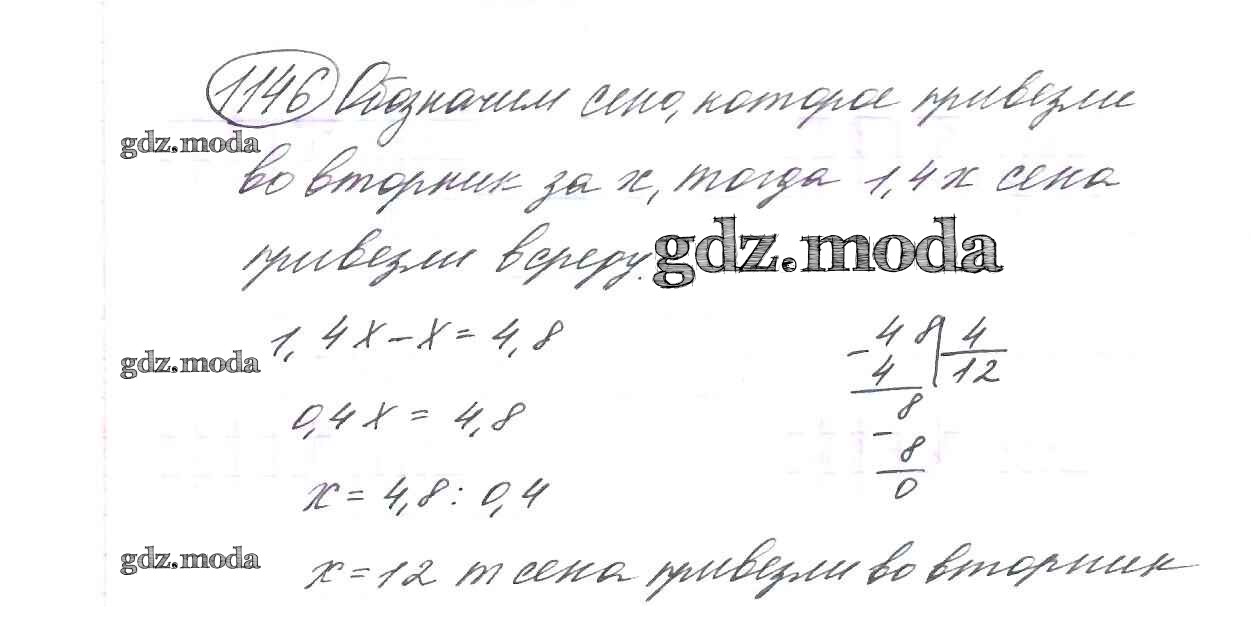 1146 Обозначим сено, которое привезли
gdz.moda
во вторник за x, тогда 1,4x сена
привезли в среду.
gdz.moda
1,4x - x = 4,8
gdz.moda
0,4x = 4,8
x = 4,8 : 0,4
gdz.moda
x = 12 т сена привезли во вторник
- 48 | 4
4 | 12
8
- 8
0